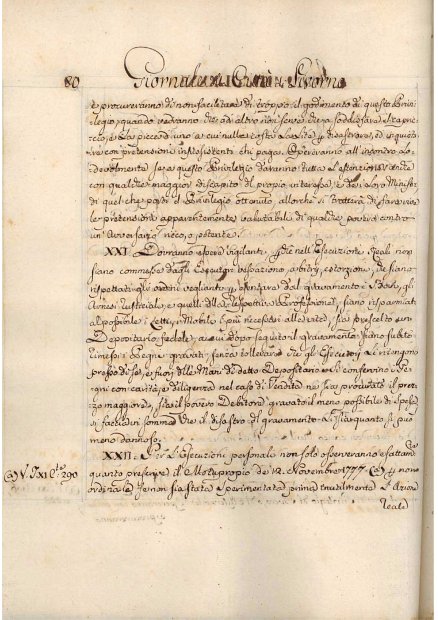 80
e procureranno di non facilitare di troppo il godimento di questo Privi-
legio, quando vedranno che ad altro non serve che a soddisfare
ciose La piccard uno a cui nulla costa La Lite, a disastrare, ed inquieta-
re con pretensioni insussistenti chi paga. Opereranno all'incontro Lo-
devolmente se a questo Privilegio daranno tutta L'estensione, anche
con qualche maggior discapito di proprio interesse, e dei Loro Ministri
di quel che porti il Privilegio ottenuto, allorchè si tratterà di favorire
le pretensioni apparentemente valutabili di qualche povero contro
un Avversario ricco, o potente.
XXI. Dovranno essere vigilanti, che nell'Esecuzioni Reali non
siano commesse dagli Esecutori vessazioni, arbitrj, estorzioni, che siano
rispettati gli ordini veglianti, ed esentati dal gravamento i Bovi, gli
Arnesi Rusticali, e quelli delle respettive Professioni, siano risparmiati
al possibile i Letti, i Mobili i più necessarj alla vita, sia prescelto un
Depositario fedele, a cui dopo seguito il gravamento siano subito
rimessi i Pegni gravati, senza tollerare che gli Esecutori Li ritengono
presso di se, e fuori delle Mani di detto Depositario si conservino i Pe-
gni con carità, e diligenza, nel caso di Vendita ne sia procurato il prez-
zo maggiore, sia il povero Debitore gravato il meno possibile di spese,
si faccia in somma che il disastro del gravamento sia quanto si può
meno dannoso.
XXII. Per L'Esecuzioni personali non solo osserveranno esattamente
quanto prescrive il Motuproprio de 12. Novembre 1777. (a) e non
ordinarle se non sia stata sperimentata prima inutilmente L'Azione
Reale
(a) V. T. XI. C.te 290